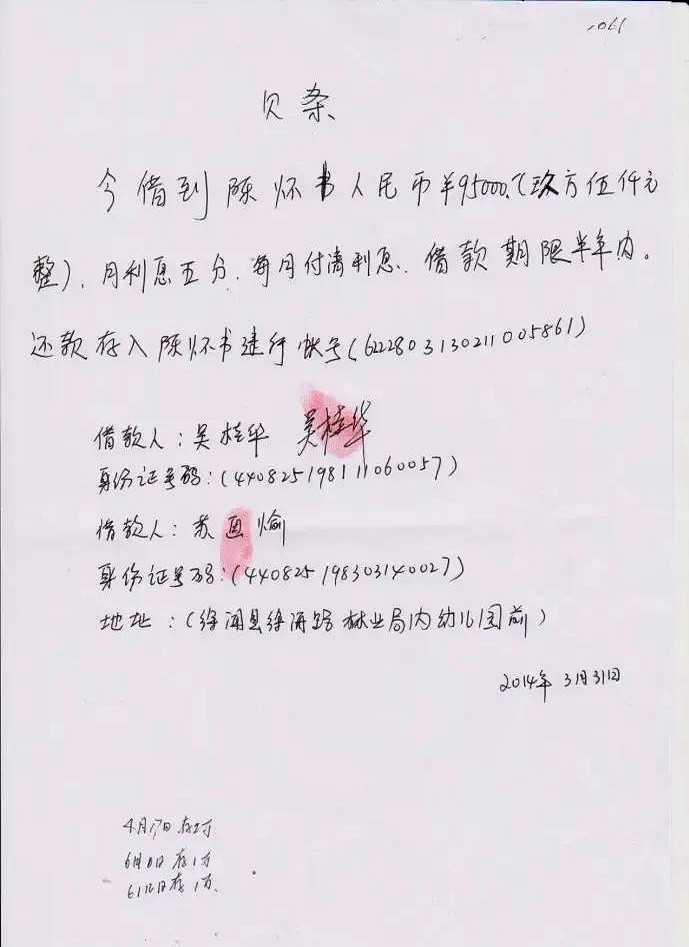 1061
贝条
今借到陈怀书人民币￥95000.(玖万伍仟元
整)、月利息五分、每月付清利息、借款期限半年内。
还款存入陈怀书建行帐号(6222803130211005861)
借款人:吴桂华 吴桂华
身份证号码:(440825198111060057)
借款人:苏 愉
身份证号码:(440825198303140027)
地址:(徐闻县徐海路林业局内幼儿园前)
2014年3月31日
4月17日存2万
6月8日存1万
6月12日存1万